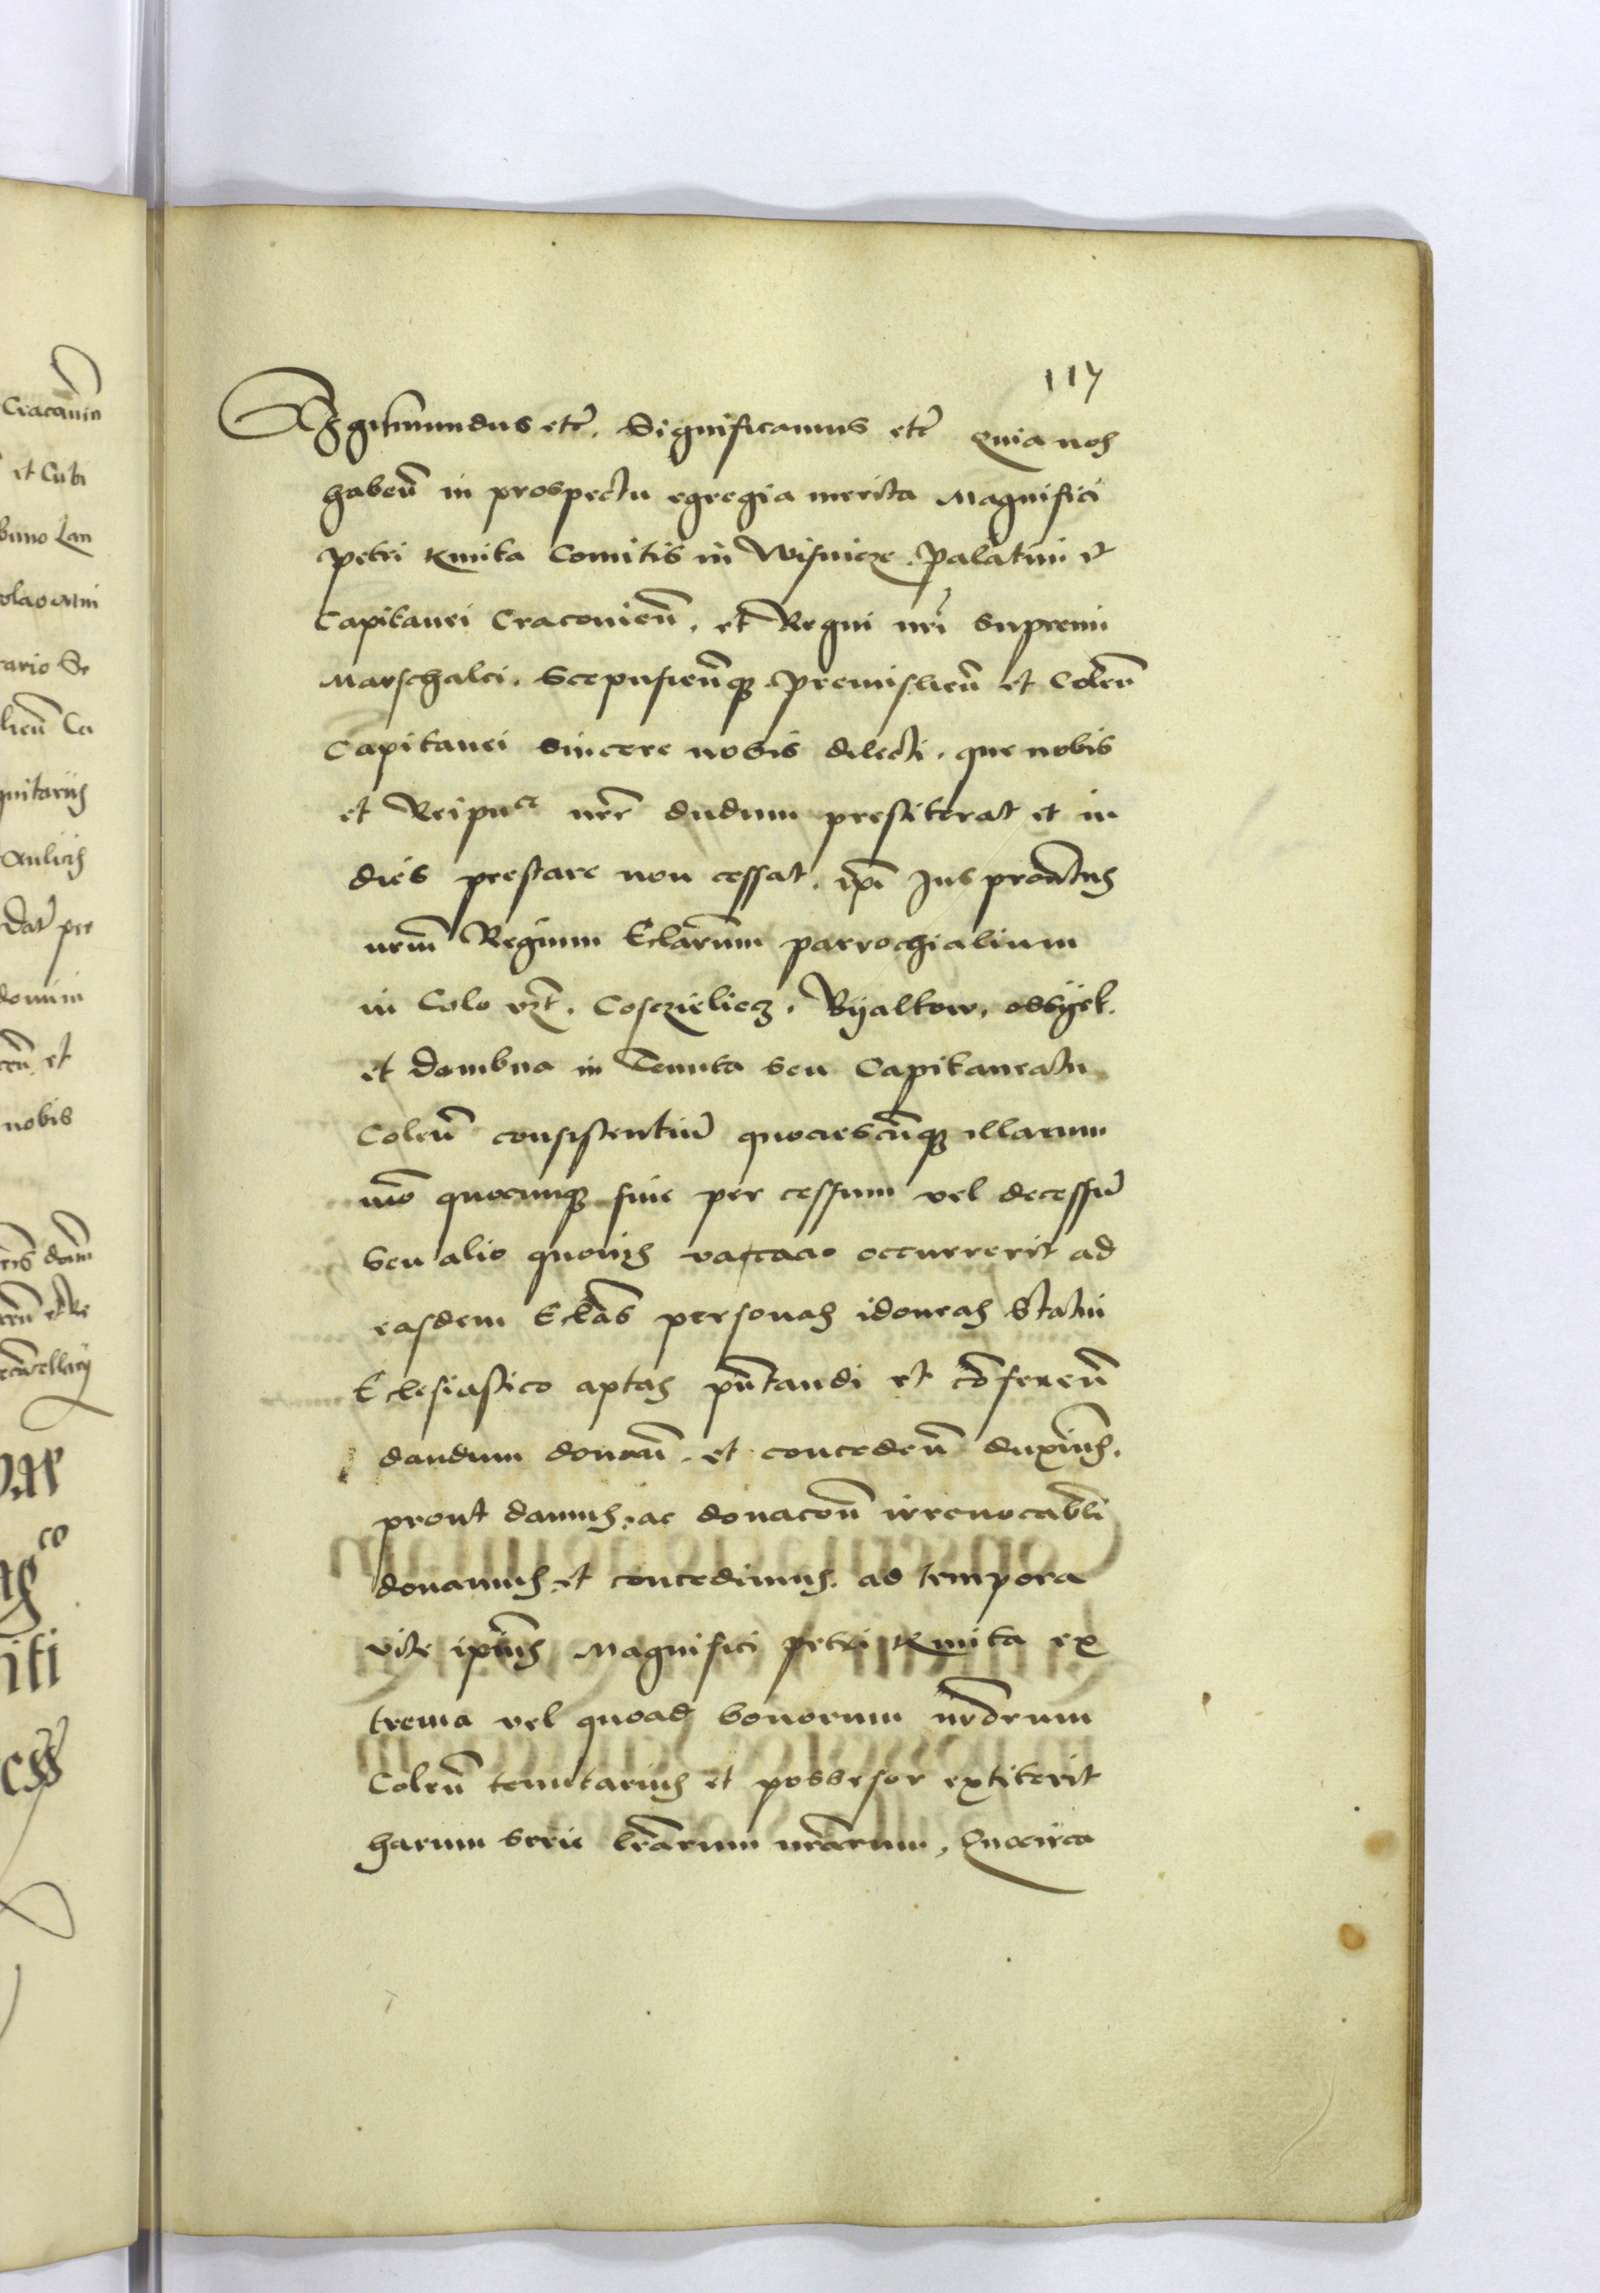 117
Sigismundus etc. Significamus etc Quia nos
habeñ in prospectu egregia merita Magnifici
Petri Kmita Comitis in Wisnicze Palatini et
Capitanei Cracovieñ, et Regni nri Supremi
Marschalci, Scepusieñq Premislieñ et Coleñ
Capitanei sincere nobis dilecti, que nobis
et Reipuce nre dudum prestiterat et in
dies prestare non cessat, ipi Jus prontus
nrm Regium Eclarum parrochialium
in Colo vzt, Cosczieliecz, Byalkow, ossyek
et Dambna in Tenuta seu Capitaneatu
Coleñ consistentiu quociescunq illarum
mo quocunq sive per cessum vel decessu
seu alio quovis vaccacio occurrerit ad
easdem Eclas personas idoneas Statui
Eclesiastico aptas pntandi et confereñ
dandum donañ, et concedeñ duximus,
prout damus, ac donacoñ irrevocabli
donamus, et concedimus, ad tempora
vite ipius Magnifici Petri Kmita ex
trema vel quoad bonorum nrorum
Coleñ tenutarius et possesor extiterit
harum serie lrarum nrarum, Quocirca
Cracavien
et Cubi
buno Lan
olao Mni
rario Se
lieñ Ca
gnitariis
Aulicis
Dat per
domini
et
nobis